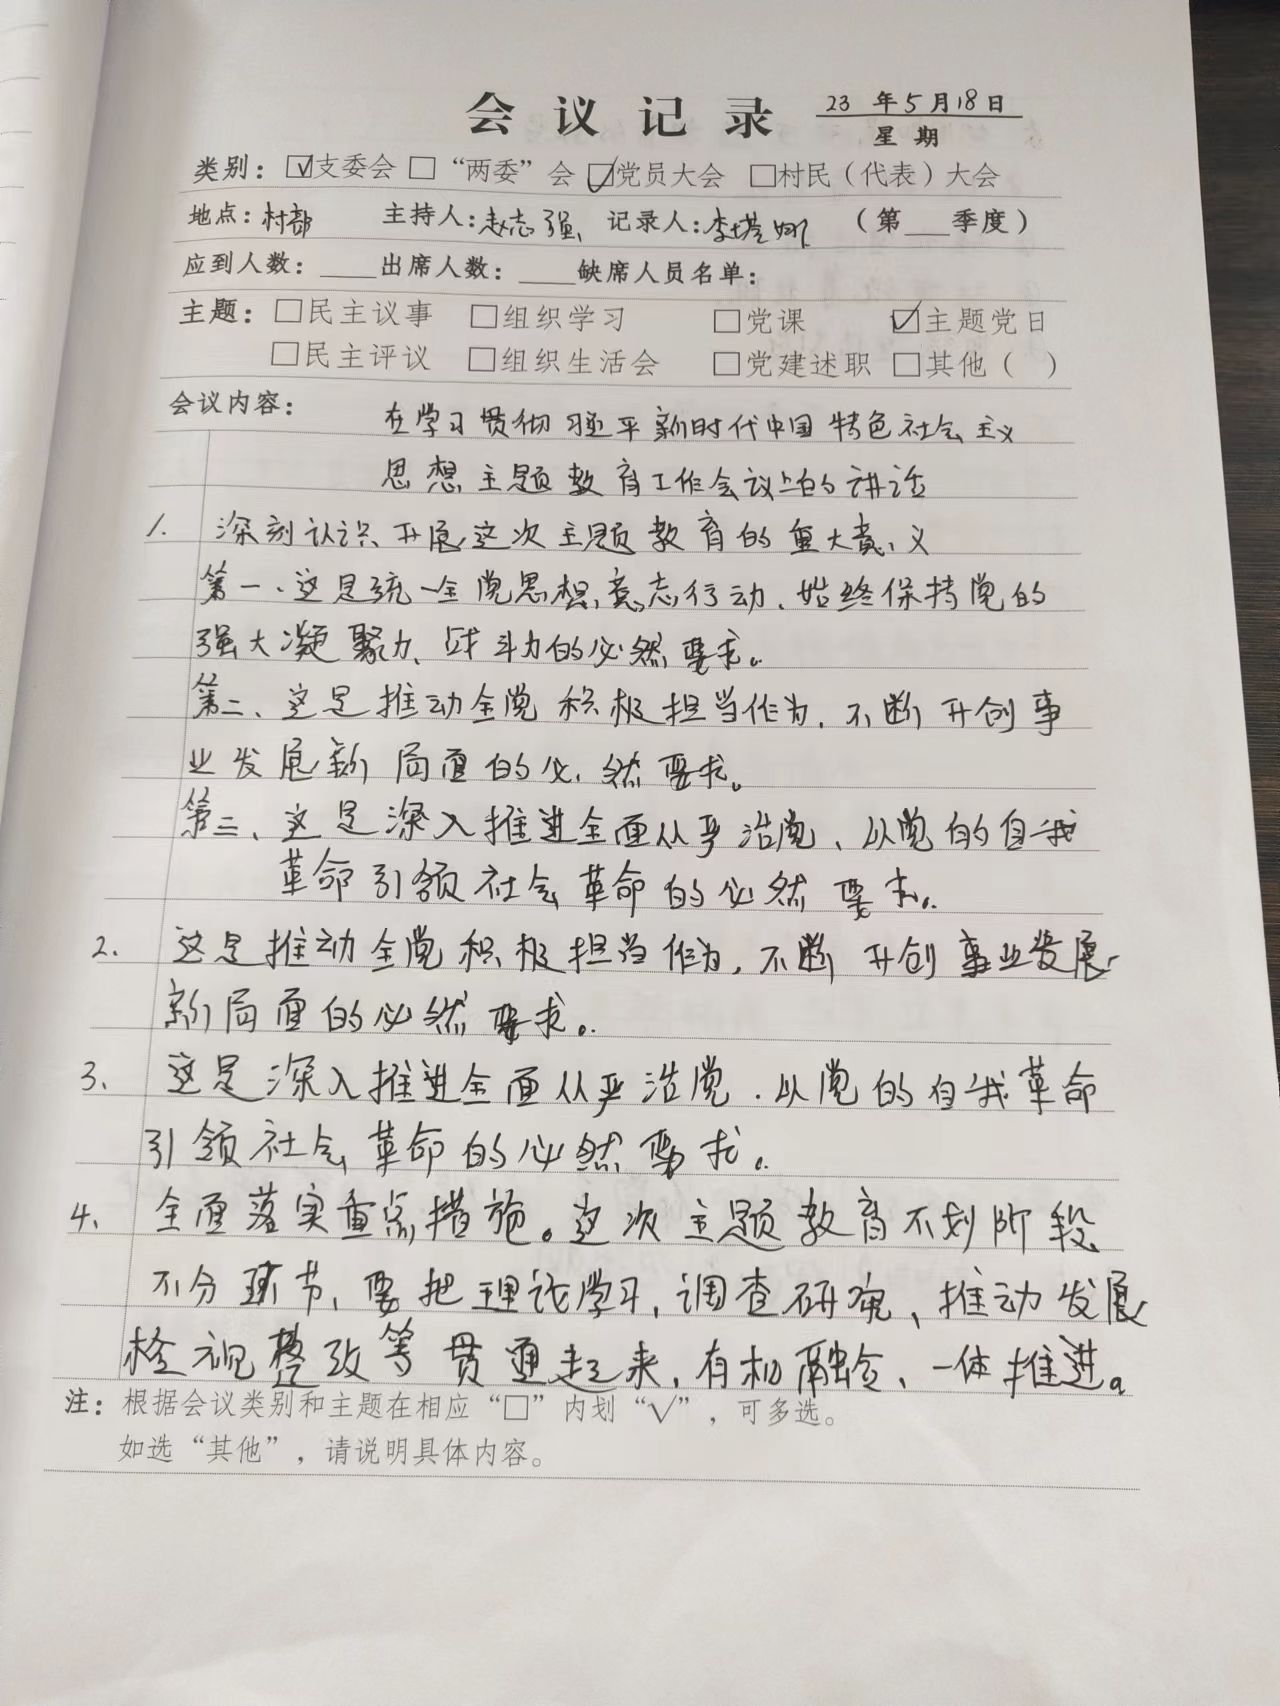 会议记录 23年5月18日
星期
类别：☑支委会 □“两委”会 ☑党员大会 □村民（代表）大会
地点：村部 主持人：赵志强 记录人：李塔娜 （第___季度）
应到人数：____出席人数：____缺席人员名单：
主题：□民主议事 □组织学习 □党课 ☑主题党日
□民主评议 □组织生活会 □党建述职 □其他（ ）
会议内容： 在学习贯彻习近平新时代中国特色社会主义
思想主题教育工作会议上的讲话
1. 深刻认识开展这次主题教育的重大意义
第一、这是统一全党思想意志行动、始终保持党的
强大凝聚力、战斗力的必然要求。
第二、这是推动全党积极担当作为，不断开创事
业发展新局面的必然要求。
第三、这是深入推进全面从严治党、以党的自我
革命引领社会革命的必然要求。
2. 这是推动全党积极担当作为，不断开创事业发展
新局面的必然要求。
3、这是深入推进全面从严治党.以党的自我革命
引领社会革命的必然要求。
4、全面落实重点措施。这次主题教育不划阶段
不分环节、要把理论学习，调查研究、推动发展
检视整改等贯通起来，有机融合、一体推进。
注：根据会议类别和主题在相应“□”内划“√”，可多选。
如选“其他”，请说明具体内容。